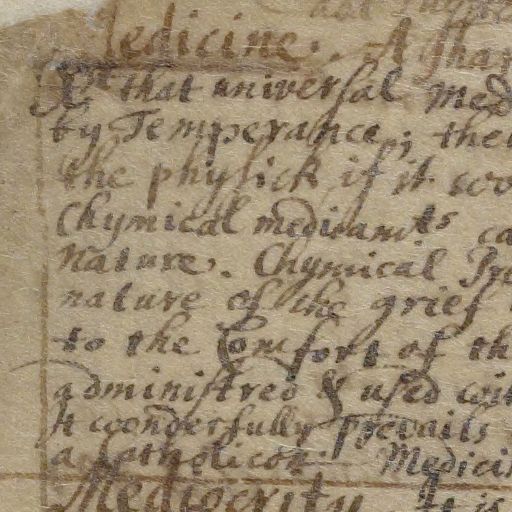 Medicine. A
that universal Med
by Temperance; the
the physick if it wo
Chymical medicamts ca
Nature. Chymical Pre
nature of the grief
to the Comfort of th
administred & used wit
It wonderfully prevails
a Catholicon. Medicin
Mediocrity. It is